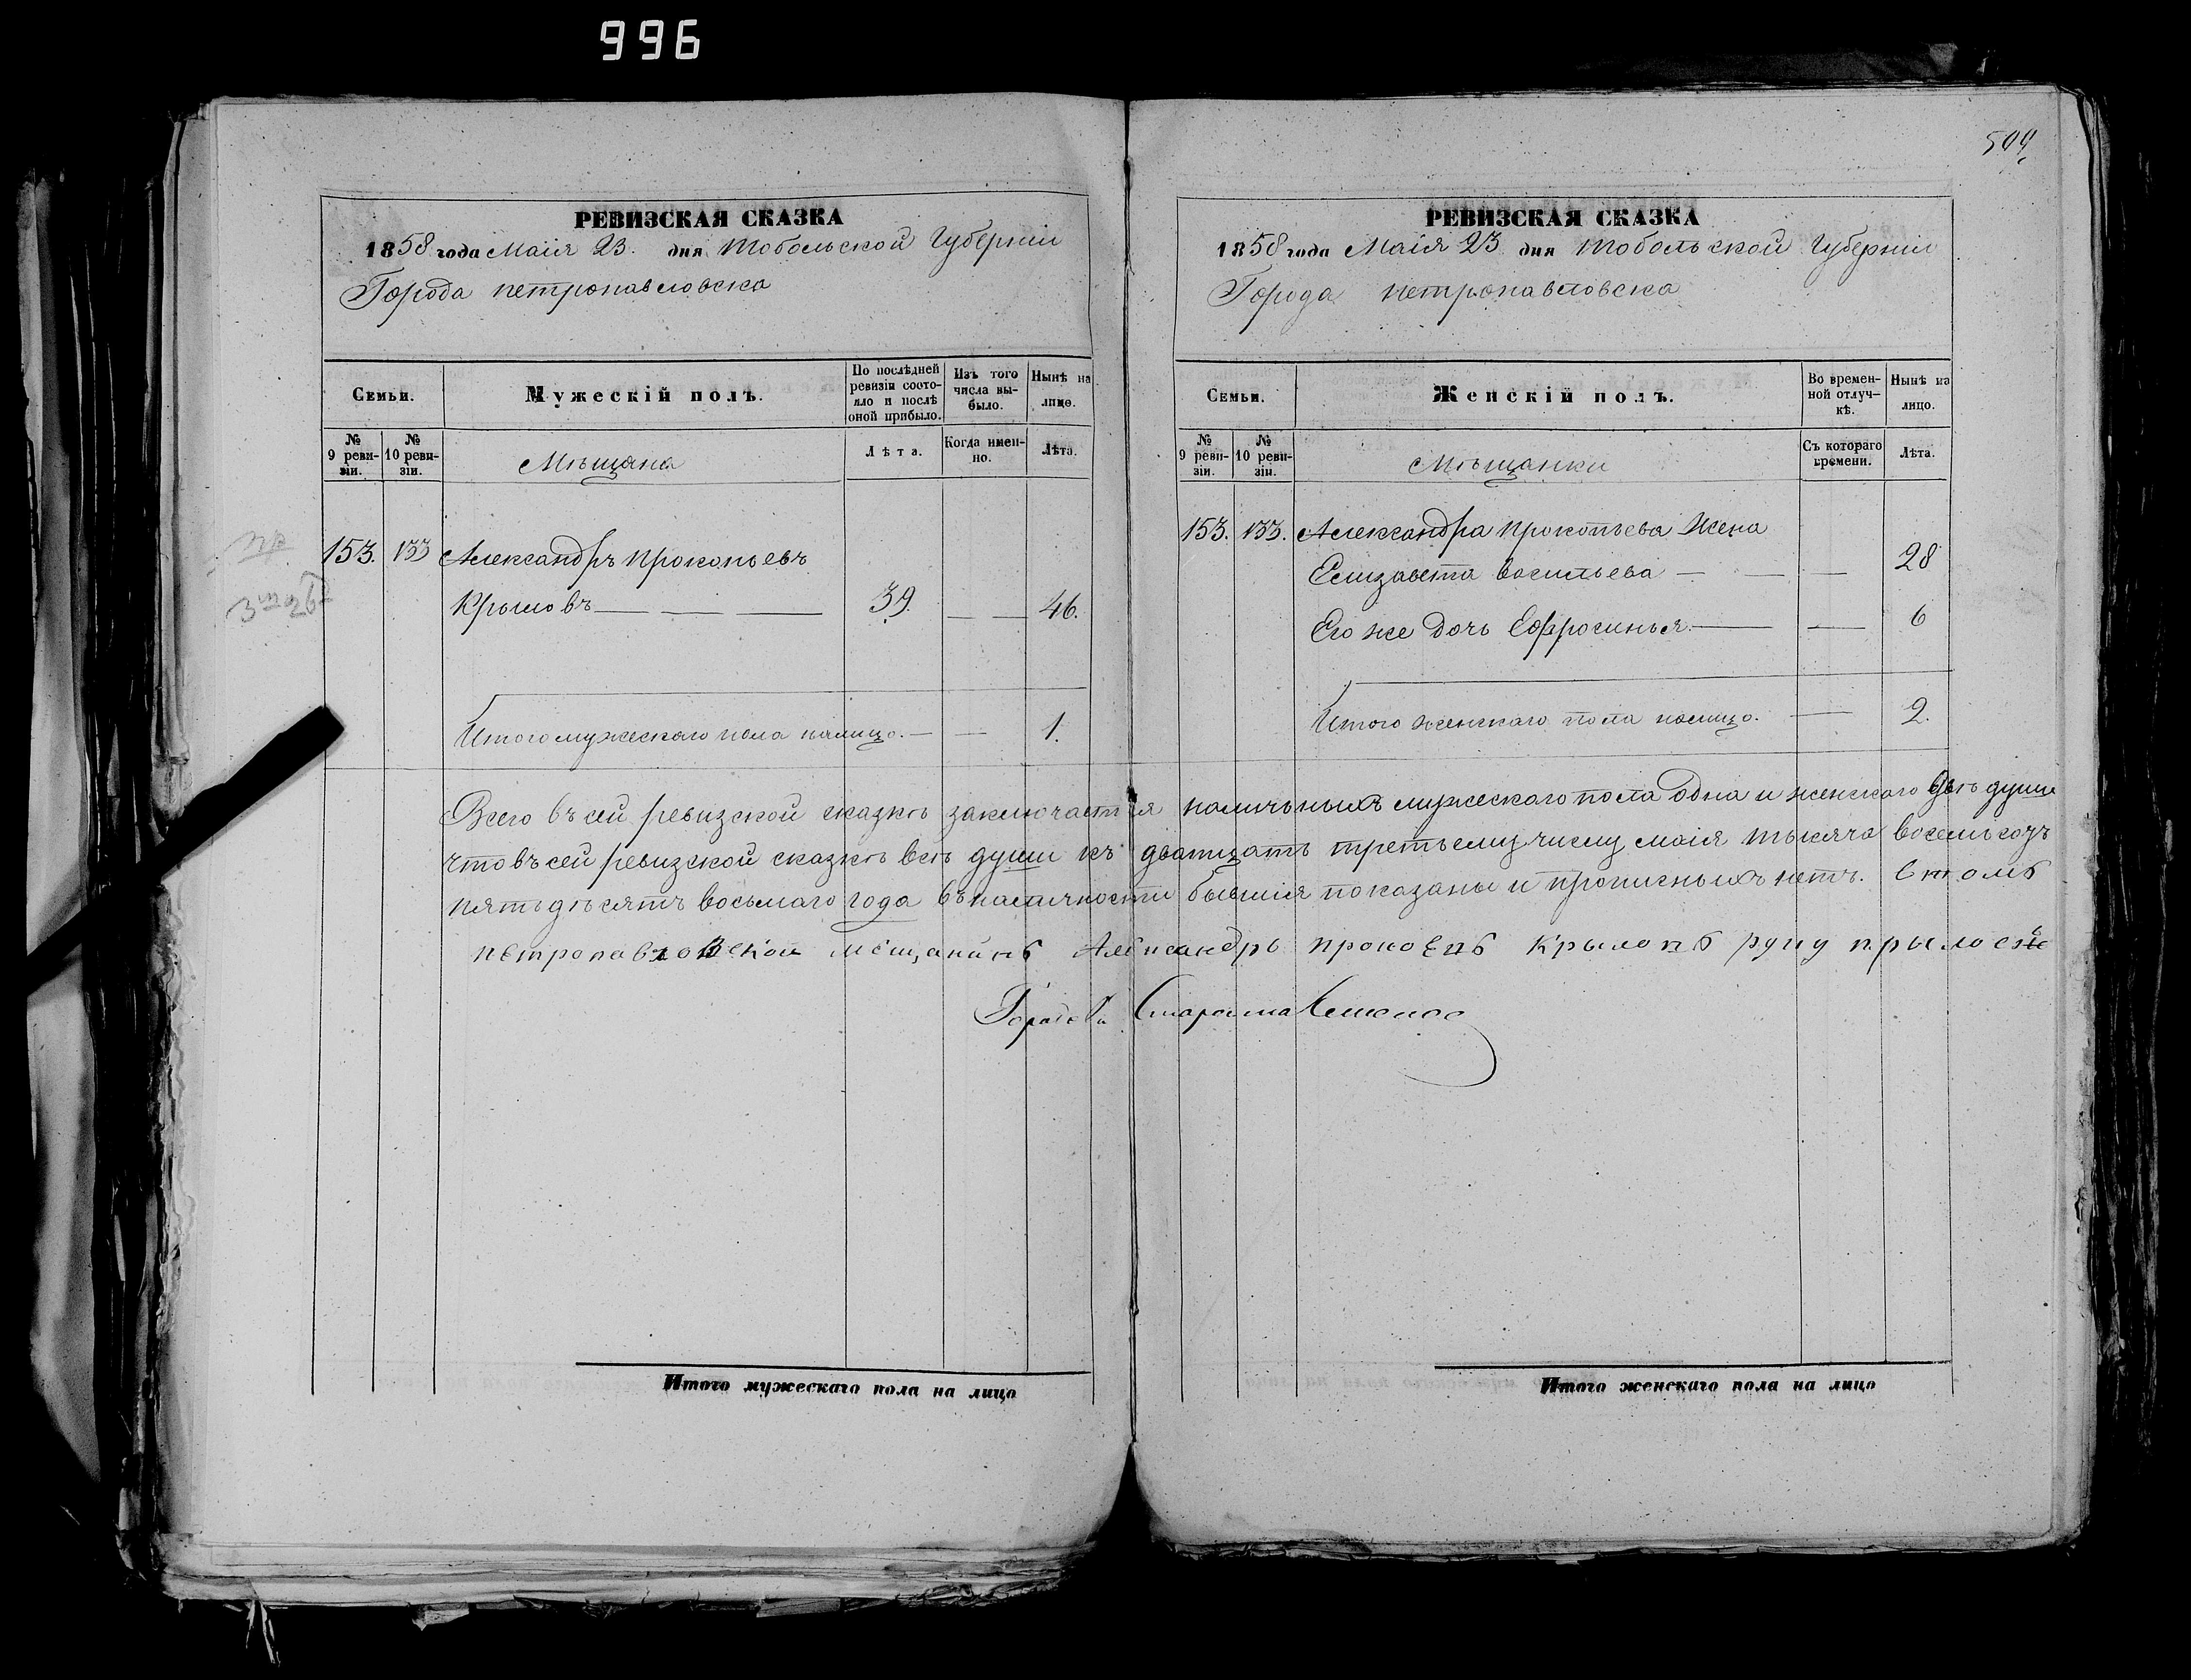 996
509
РЕВИЗСКАЯ СКАЗКА
1858 года Маія 23. дня Тобольской Губерніи
Города петропавловска
Семьи.
Мужескій полъ.
По послѣдней ревизіи состояло и послѣ оной прибыло.
Изъ того числа выбыло.
Нынѣ на лицо.
№ 9 ревизіи.
№ 10 ревизіи.
Мѣщяна
Лѣта.
Когда именно.
Лѣта.
153. 133 Александръ Прокопьевъ
Крыловъ 39. 46.
Итого мужескаго пола налицо. 1.
РЕВИЗСКАЯ СКАЗКА
1858 года Маія 23 дня Тобольской Губерніи
Города петропавловска
Семьи.
Женскій полъ.
Во временной отлучкѣ.
Нынѣ на лицо.
№ 9 ревизіи.
№ 10 ревизіи.
Мѣщанки
Съ котораго времени.
Лѣта.
153. 133. Александра Прокопьева Жена
Елизавета Васильева 28
Его же Дочь Ефросинья. 6
Итого женскаго пола налицо. 2.
Всего въ сей ревизской сказкѣ заключается наличныхъ мужескаго пола одна и женскаго двѣ души
что въ сей ревизской сказкѣ всѣ души къ дватцать третьему числу маія тысяча восемьсотъ
пятьдѣсятъ восьмаго года въ наличности бывшія показаны и прописныхъ нетъ. Втомъ
петропавловской мещанинъ Александръ Крыловъ руку
Староста
Итого мужескаго пола на лицо
Итого женскаго пола на лицо